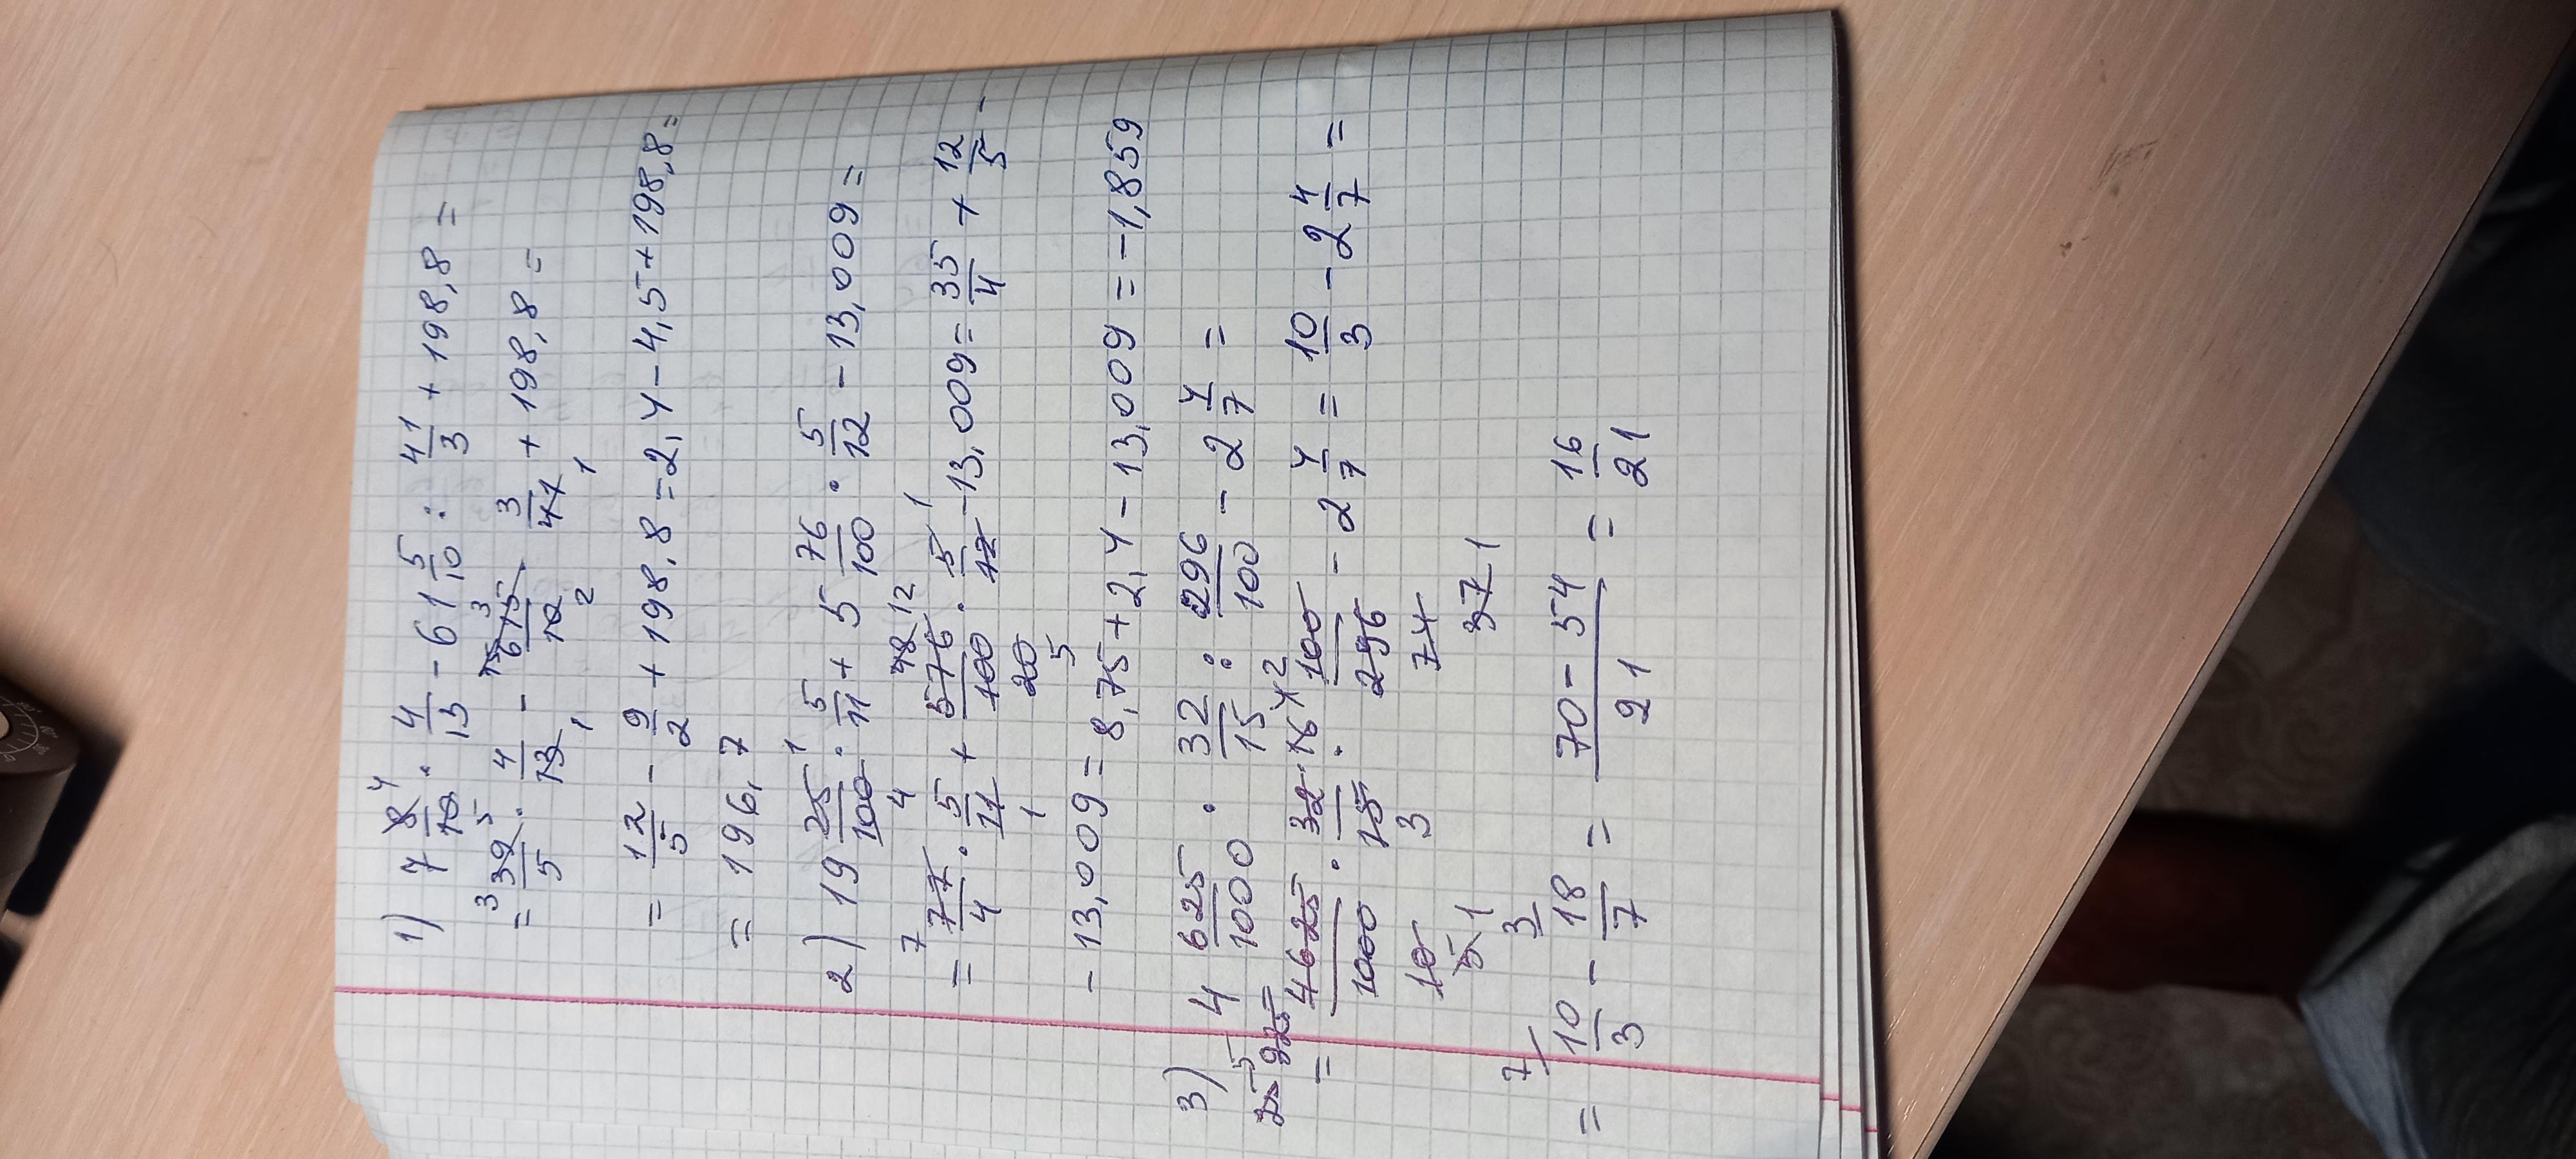 1) 7 8/10 · 4/13 - 61 5/10 : 41/3 + 198,8 =
= 39/5 · 4/13 - 615/10 · 3/41 + 198,8 =
= 12/5 - 9/2 + 198,8 = 2,4 - 4,5 + 198,8 =
= 196,7
2) 19 25/100 · 5/11 + 5 76/100 · 5/12 - 13,009 =
= 77/4 · 5/11 + 576/100 · 5/12 - 13,009 = 35/4 + 12/5 -
- 13,009 = 8,75 + 2,4 - 13,009 = -1,859
3) 4 625/1000 · 32/15 : 296/100 - 2 4/7 =
= 4625/1000 · 32/15 · 100/296 - 2 4/7 = 10/3 - 2 4/7 =
= 10/3 - 18/7 = 70 - 54/21 = 16/21